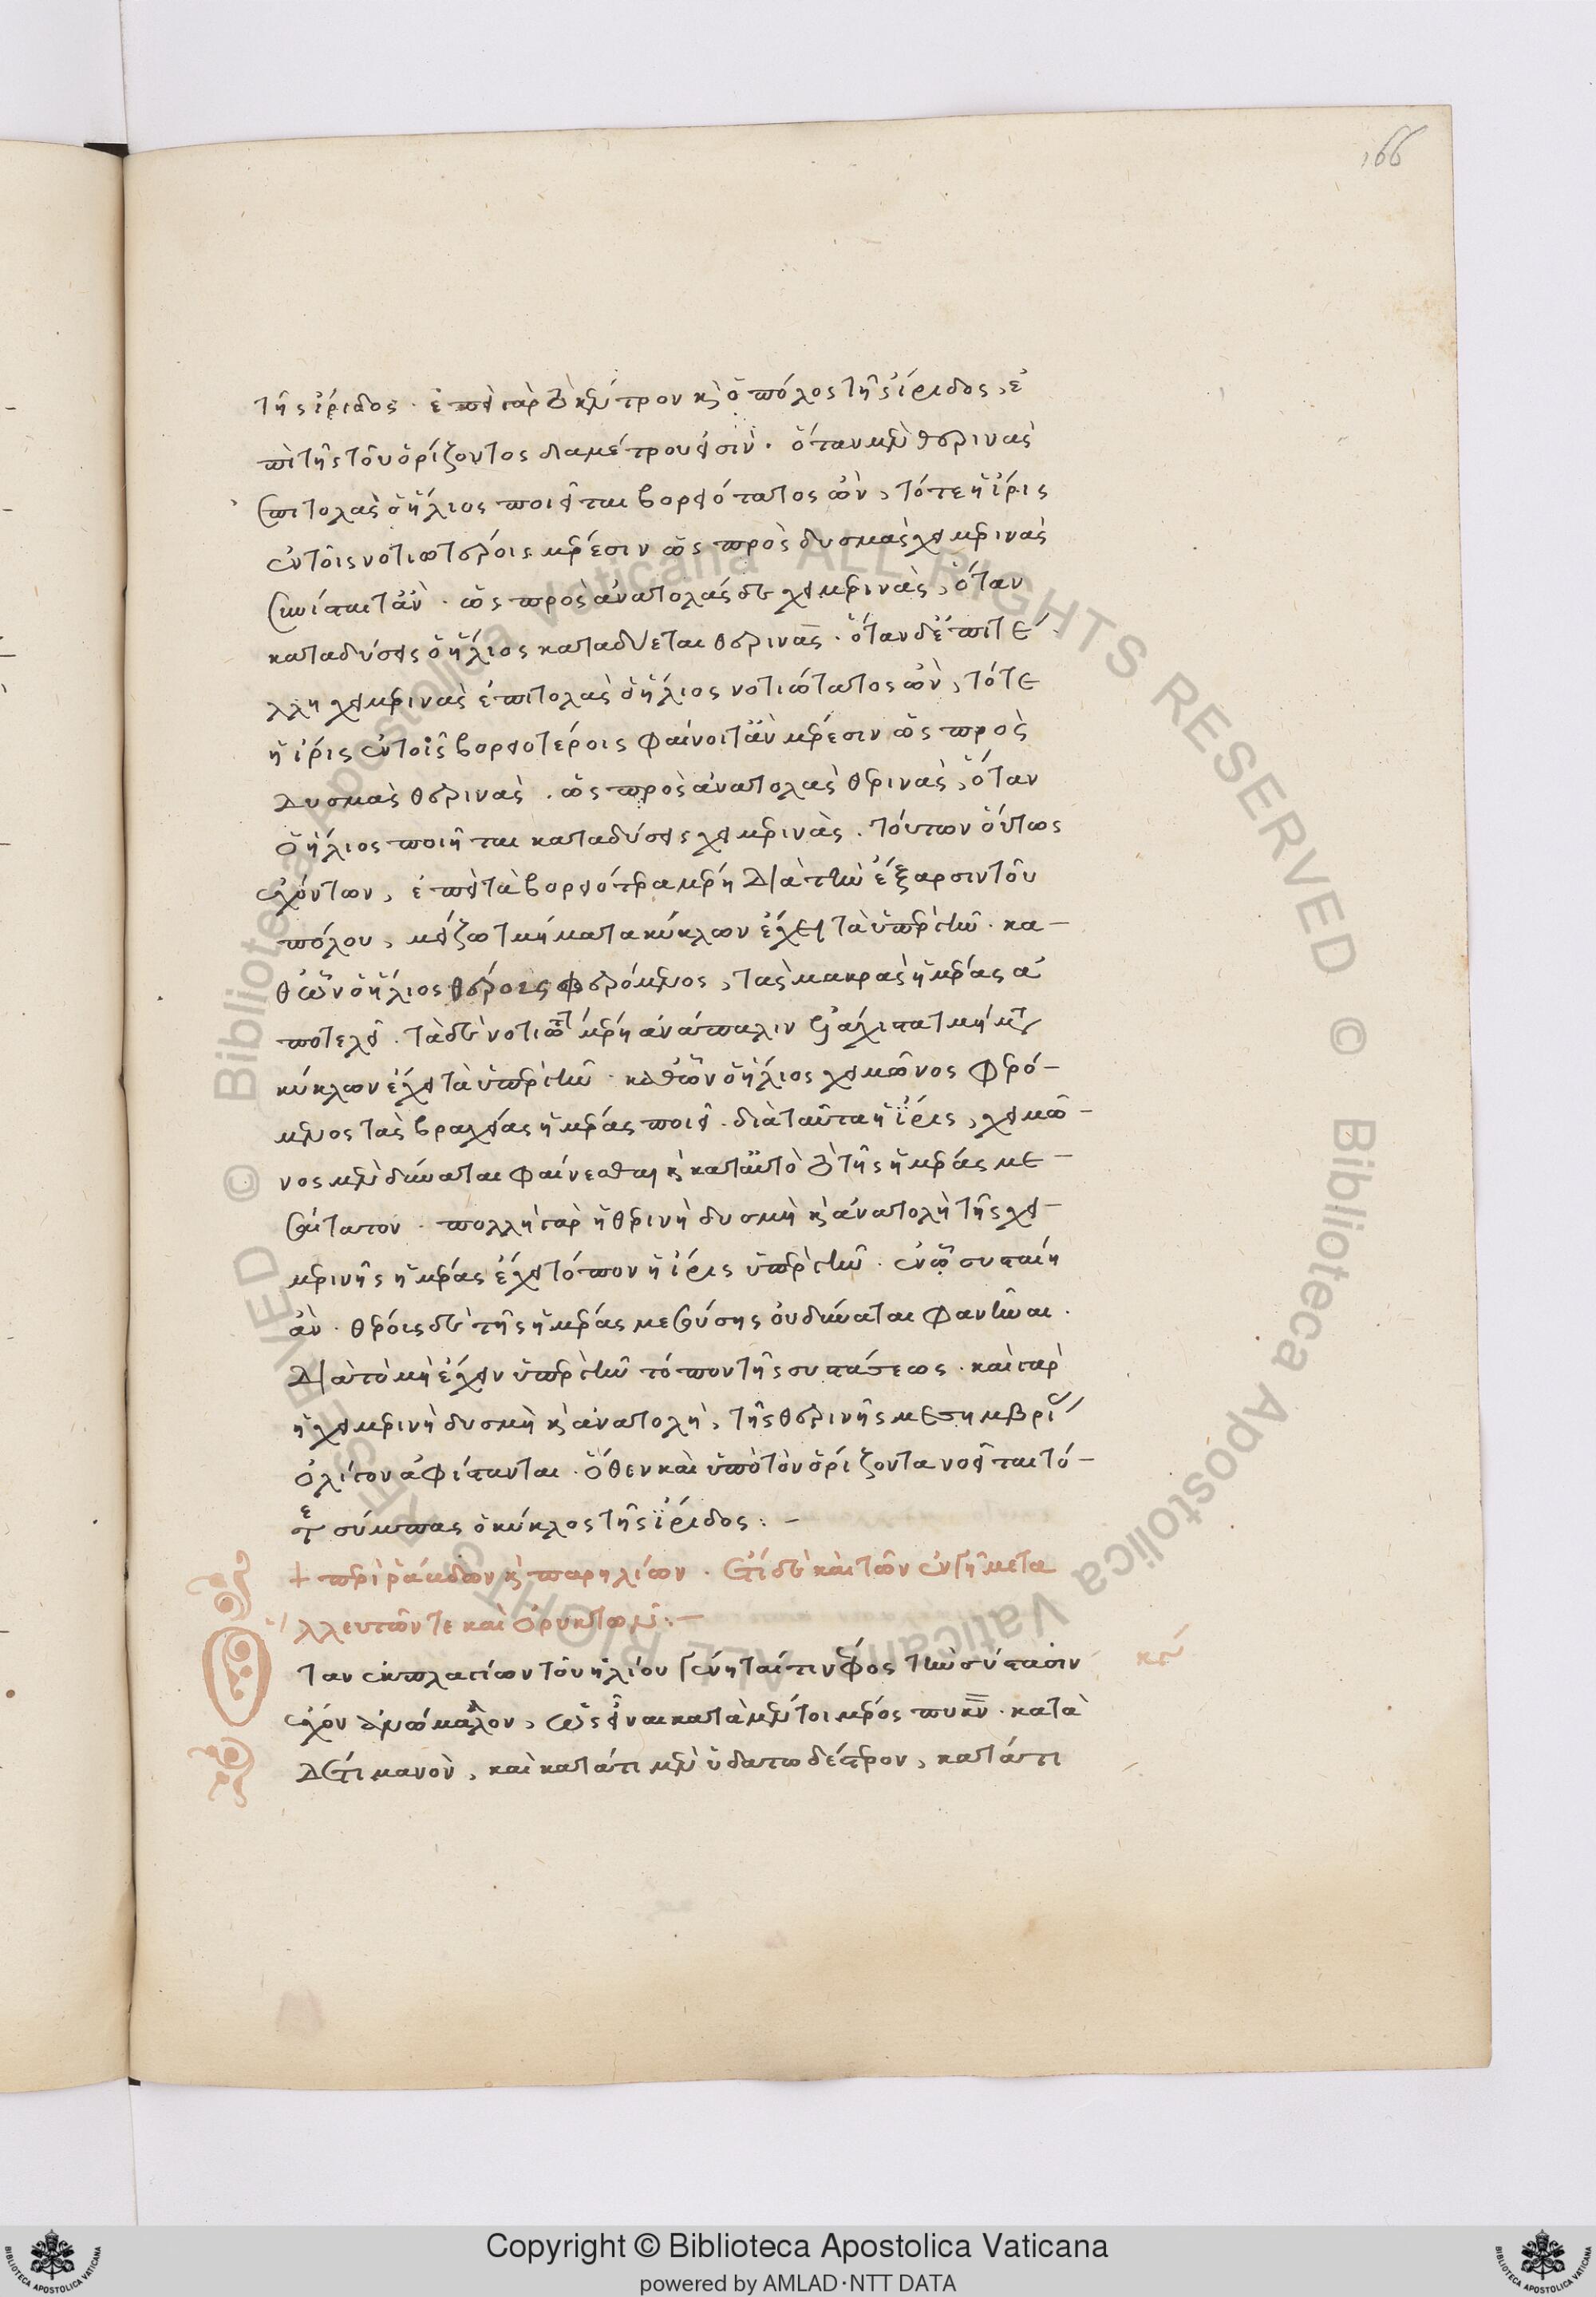 166
τῆς ἴριδος · ἐπεὶ γὰρ τὸ κέντρον κ ὁ πόλος τῆς ἴριδος, ἐ
πὶ τῆς τοῦ ὁρίζοντος διαμέτρου εἰσίν · ὅταν μὲν θερινὰς
ἐπιτολὰς ὁ ἥλιος ποιεῖται βορειότατος ὢν, τότε ἡ ἶρις
ἐν τοῖς νοτιωτέροις μέρεσιν ὡς πρὸς δυσμὰς χειμερινὰς
συνίσταιτ ἂν · ὡς πρὸς ἀνατολάς δὲ χειμερινὰς, ὅταν
καταδύσεις ὁ ἥλιος καταδύεται θερινας · ὅταν δὲ ἐπιτέ
λλη χειμερινὰς ἐπιτολὰς ὁ ἥλιος νοτιώτατος ὢν, τότε
ἡ ἶρις ἐν τοῖς βορειοτέροις φαίνοιτ ἂν μέρεσιν ὡς πρὸς
δυσμὰς θερινὰς · ὡς πρὸς ἀνατολὰς θερινὰς, ὅταν
ὁ ἥλιος ποιῆται καταδύσεις χειμερινὰς · τούτων οὕτως
ἐχόντων, ἐπεὶ τὰ βορειότερα μέρη διὰ τὴν ἔξαρσιν τοῦ
πόλου, μείζω τμήματα κύκλων ἔχει τὰ ὑπὲρ γῆν · κα-
θ ὧν ὁ ἥλιος θέροις φερόμενος, τὰς μακρὰς ἡμέρας ἀ
ποτελεῖ · τὰ δὲ νοτιώτ μέρη ἀνάπαλιν ἐλάχιστα τμήμτ
κύκλων ἔχει τὰ ὑπὲρ γῆν · καθ ὧν ὁ ἥλιος χειμῶνος φερό-
μενος τὰς βραχείας ἡμέρας ποιεῖ · διὰ ταῦτα ἡ ἶρις, χειμῶ-
νος μὲν δύναται φαίνεσθαι κ κατ αὐτὸ τὸ τῆς ἡμέρας με-
σαίτατον · πολλὴ γὰρ ἡ θερινὴ δυσμὴ κ ἀνατολὴ τῆς χει-
μερινῆς ἡμέρας ἔχει τόπον ἡ ἶρις ὑπὲρ γῆν · ἐν ᾧ συσταίη
ἂν · θέροις δὲ τῆς ἡμέρας μεσούσης οὐ δύναται φανῆναι ·
διὰ τὸ μὴ ἔχειν ὑπὲρ γῆν τόπον τῆς συστάσεως · καὶ γὰρ
ἡ χειμερινὴ δυσμὴ κ ἀνατολὴ, τῆς θερινῆς μεσημβρί
ὀλίγον ἀφίστανται · ὅθεν καὶ ὑπὸ τὸν ὁρίζοντα νοεῖται τό-
τε σύμπας ὁ κύκλος τῆς ἴριδος : -
+ περὶ ῥάβδων κ παρηλίων · ἔτι δὲ καὶ τῶν ἐν γῆ μετα
λλευτῶν τε καὶ ὀρυκτῶν : -
ταν ἐκ πλαγίων τοῦ ἡλίου γένηταί τι νέφος τὴν σύστασιν
ἔχον ἀνώμαλον, ὡς εἶναι κατὰ μέν τοι μέρος πυκν · κατὰ
δέ τι μανὸν, καὶ κατά τι μὲν ὑδατωδέστερον, κατά τι